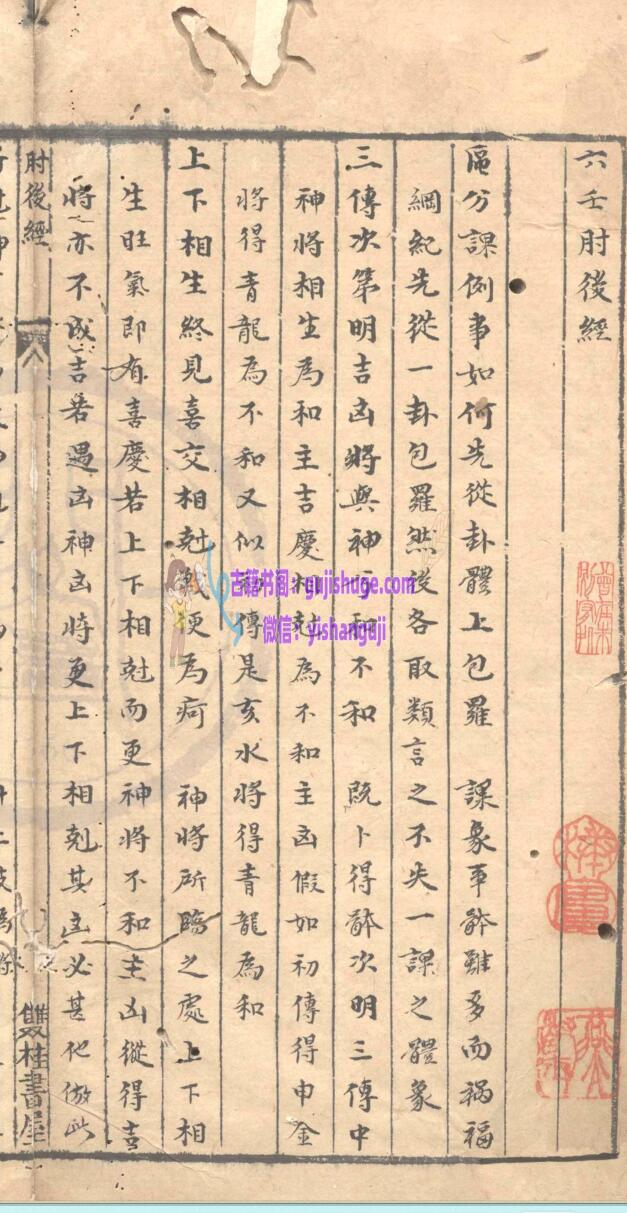 六壬肘後經
區分課例事如何先從卦體上包羅 課象事體雖多而禍福
綱紀先從一卦包羅然後各取類言之不失一課之體象
三傳次第明吉凶將與神亏和不和 既卜得體次明三傳中
神將相生為和主吉慶相尅為不和主凶假如初傳得申金
將得青龍為不和又似 傳是亥水將得青龍為和
上下相生終見喜交相尅戰便為疴 神將所臨之處上下相
生旺氣即有喜慶若上下相尅而更神將不和主凶縱得吉
將亦不成吉若遇凶神凶將更上下相剋其凶必甚他倣此
肘後經
雙桂書屋
古籍书阁：gujishuge.com
微信：yishanguji